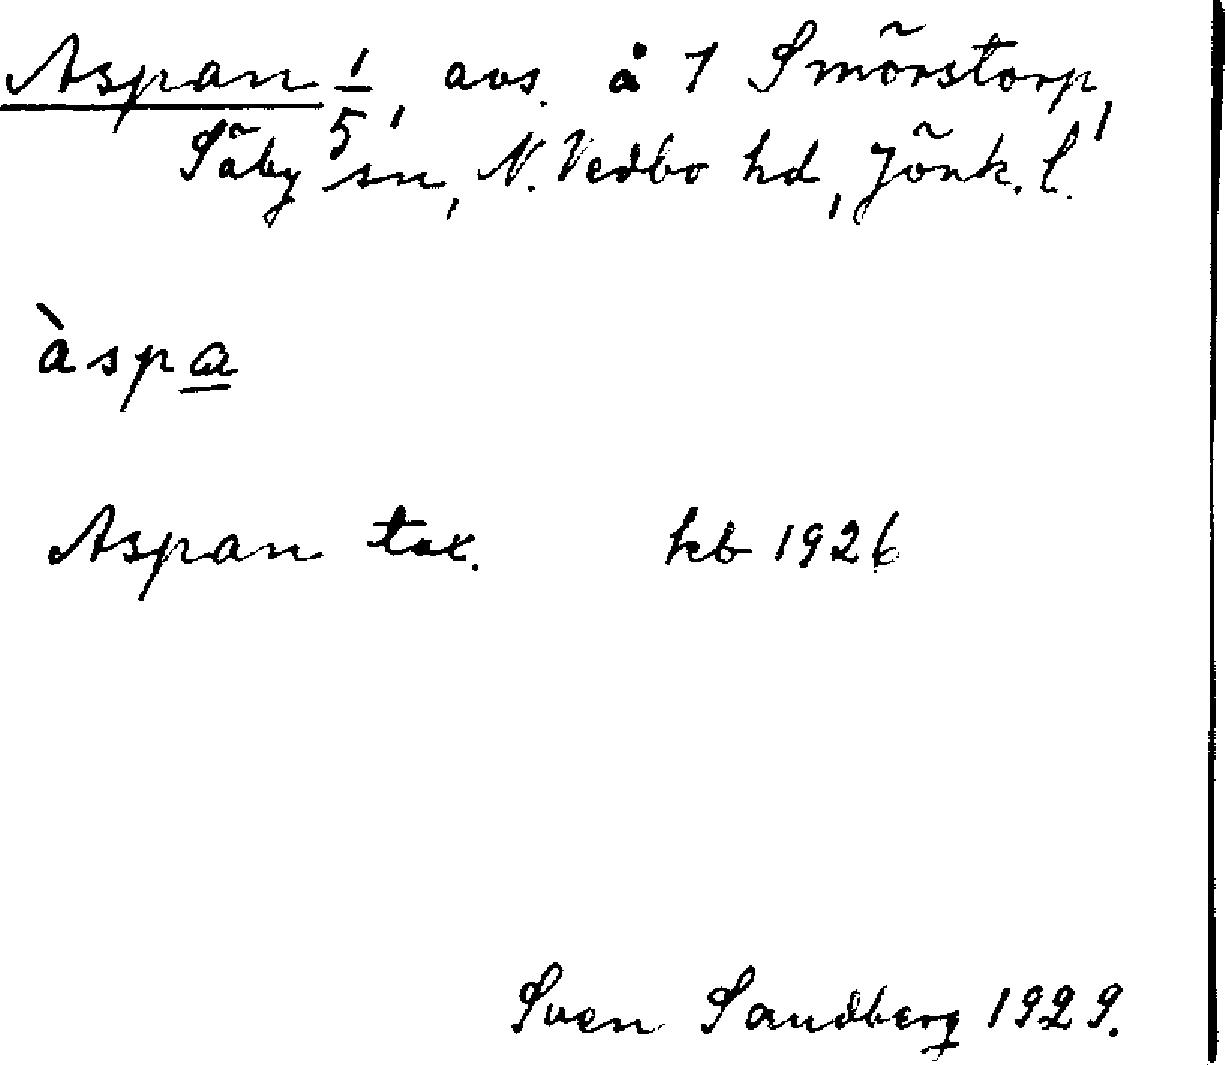 Aspan 1/5, avs. å 1 Smörstorp,
Säby sn, N. Vedbo hd, Jönk. l.
àspa
Aspan tax. kb 1926
Sven Sandberg 1929.